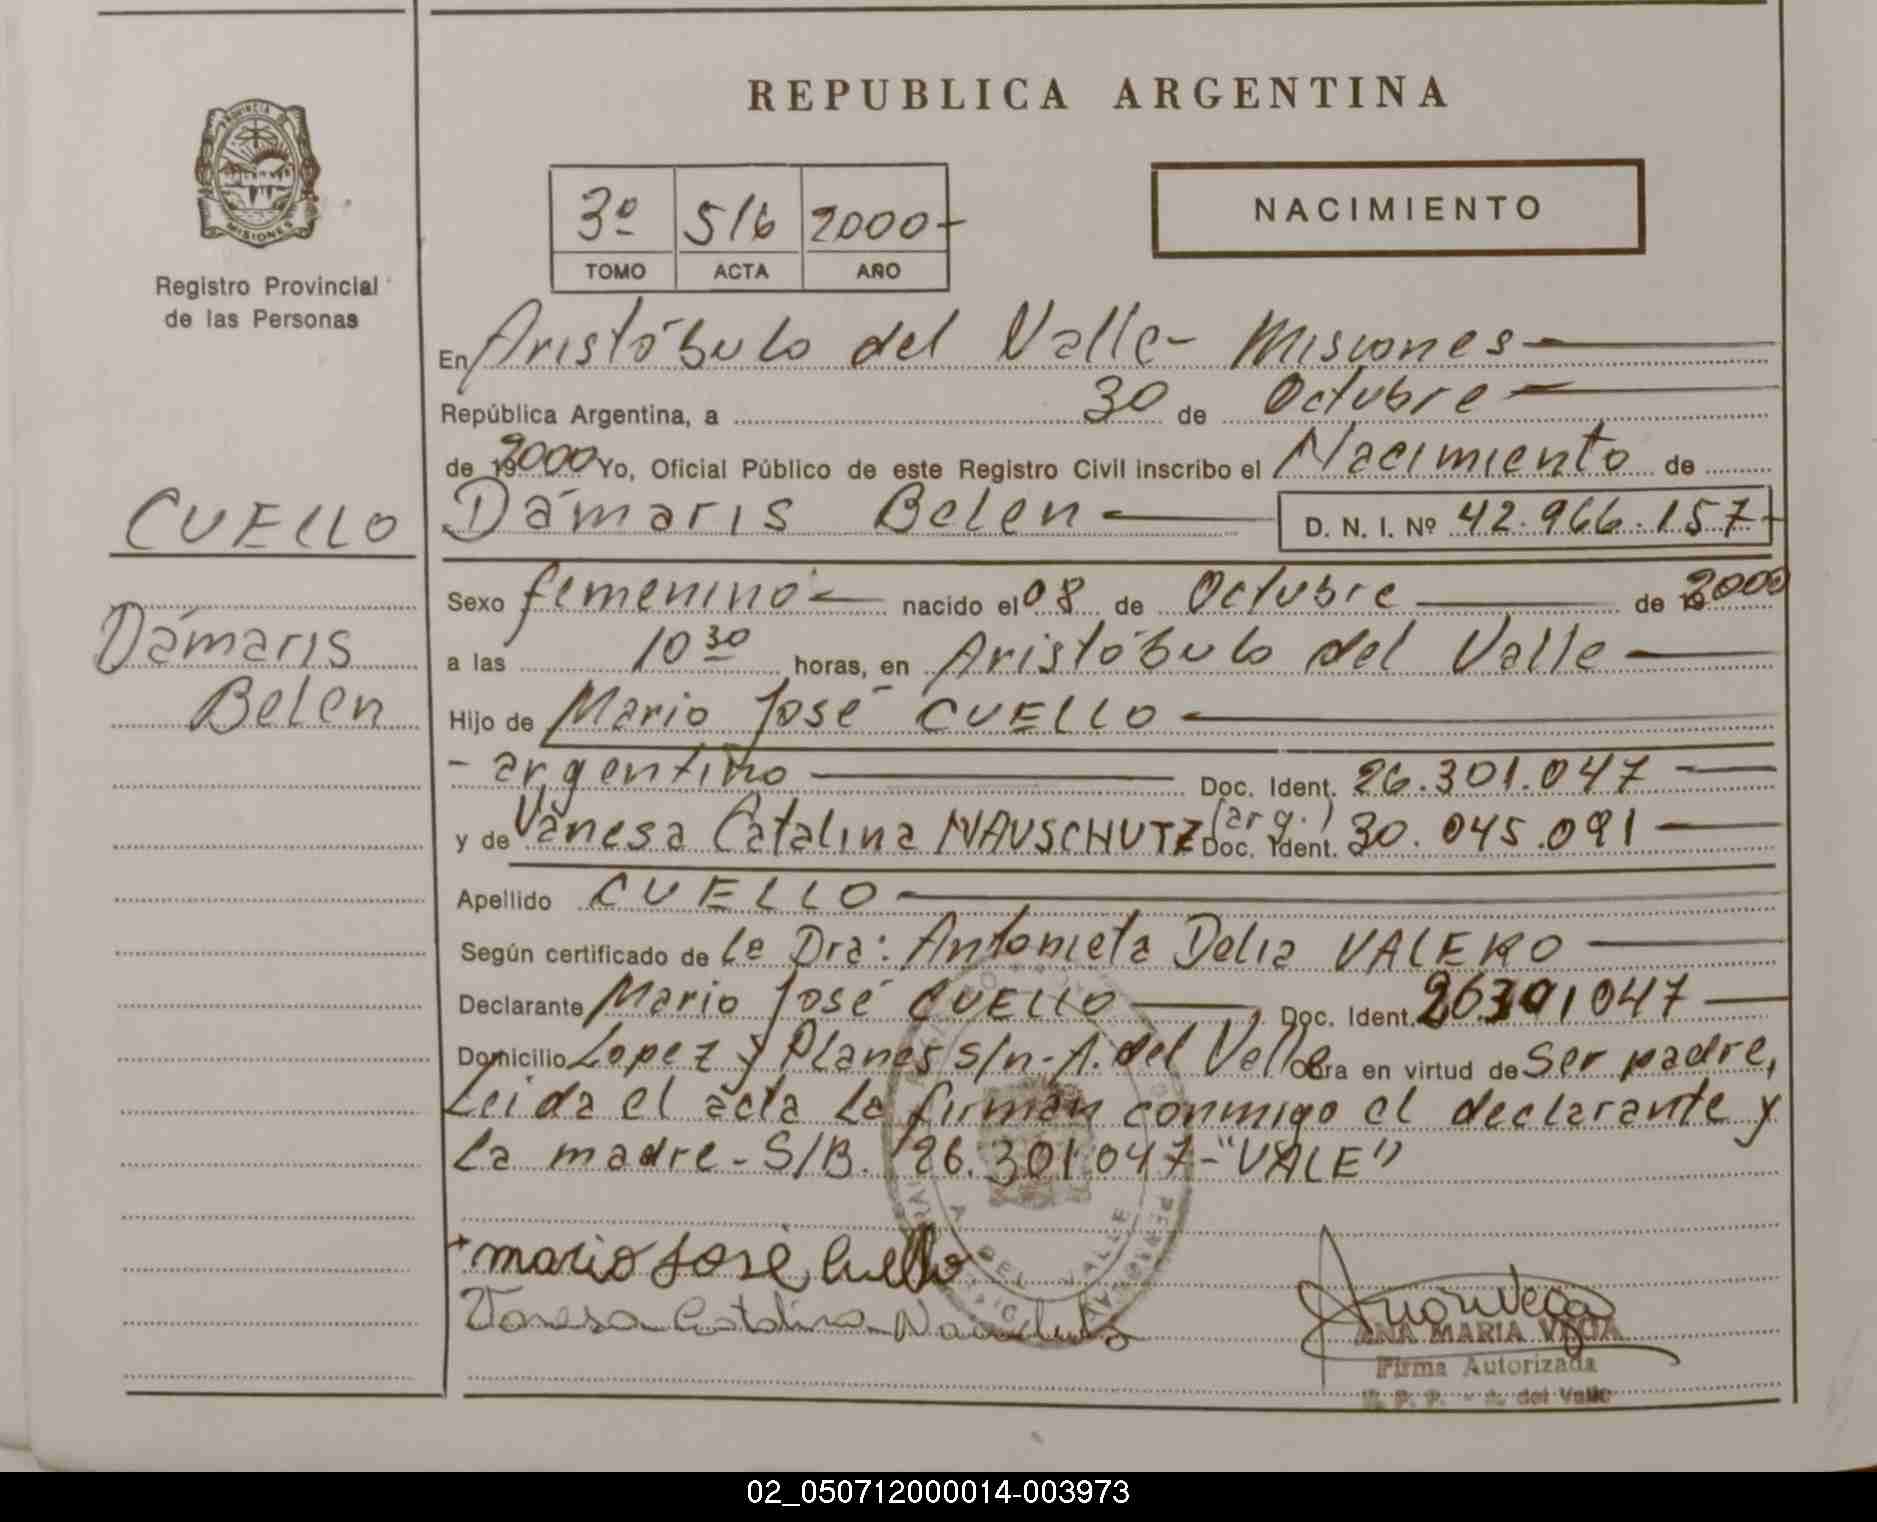 REPUBLICA ARGENTINA
PROVINCIA DE
MISIONES
Registro Provincial
de las Personas
3º 516 2000-
TOMO ACTA AÑO
NACIMIENTO
En Aristóbulo del Valle- Misiones
República Argentina, a 30 de Octubre
de 19 2000 Yo, Oficial Público de este Registro Civil inscribo el Nacimiento de
CUELLO
Dámaris Belen D. N. I. Nº 42.966.157-
Dámaris
Belen
Sexo femenino- nacido el 08 de Octubre de 19 2000
a las 10 30 horas, en Aristóbulo del Valle
Hijo de Mario José CUELLO
- argentino Doc. Ident. 26.301.047
y de Vanesa Catalina NAUSCHUTZ (arg.) Doc. Ident. 30.045.091
Apellido CUELLO
Según certificado de La Dra: Antonieta Delia VALERO
Declarante Mario José CUELLO Doc. Ident. 26.301047
Domicilio Lopez y Planes s/n-A. del Valle Obra en virtud de Ser padre,
Leida el acta La firman conmigo el declarante y
La madre- S/B. 26.301.047-"VALE"
A. DEL VALLE
mario José Cuello
Vanesa Catalina
ANA MARIA VEGA
Firma Autorizada
R. P. P. - A. del Valle
02_050712000014-003973